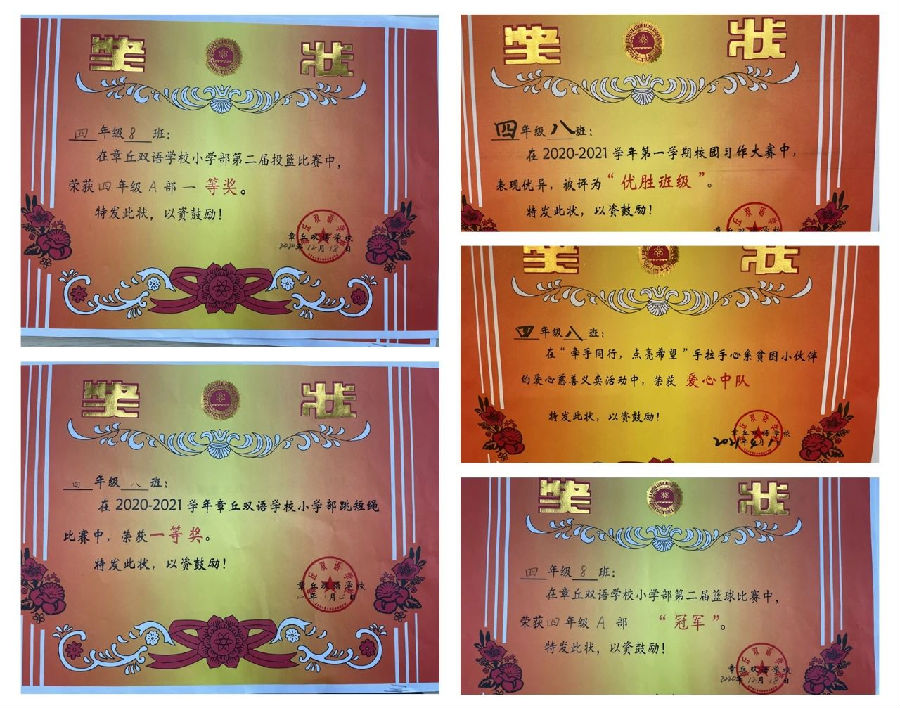 奖 状
四年级8班：
在章丘双语学校小学部第二届投篮比赛中，
荣获四年级A部一等奖。
特发此状，以资鼓励！
章丘双语学校
2020年12月18日
奖 状
四年级八班：
在2020-2021学年章丘双语学校小学部跳短绳
比赛中，荣获一等奖。
特发此状，以资鼓励！
章丘双语学校
奖 状
四年级八班：
在2020-2021学年第一学期校园习作大赛中，
表现优异，被评为“优胜班级”。
特发此状，以资鼓励！
奖 状
四年级八班：
在“牵手同行，点亮希望”手拉手心系贫困小伙伴
的爱心慈善义卖活动中，荣获 爱心中队
特发此状，以资鼓励！
章丘双语学校
奖 状
四年级8班：
在章丘双语学校小学部第二届篮球比赛中，
荣获四年级A部 “冠军”。
特发此状，以资鼓励！
章丘双语学校
2020年12月18日